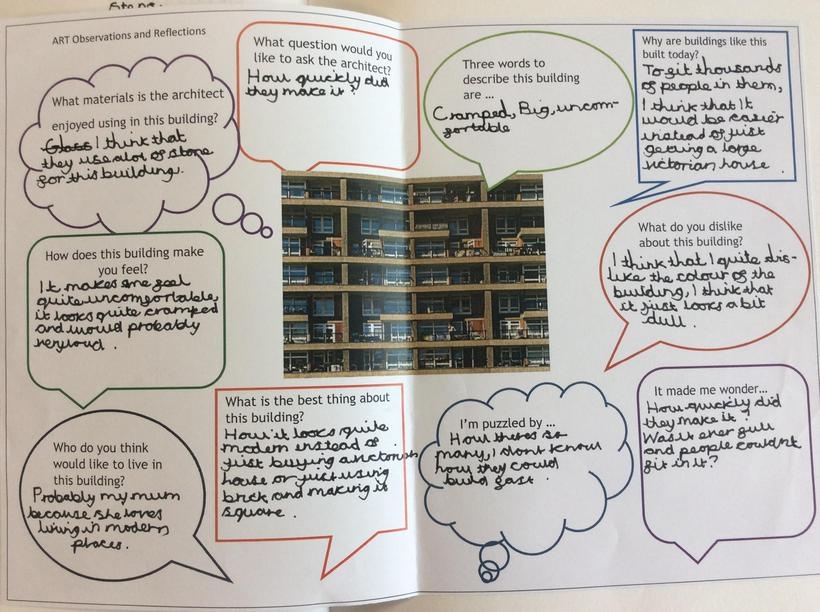 Stone.
ART Observations and Reflections
What materials is the architect
enjoyed using in this building?
Glass I think that
they use alot of stone
for this building.
What question would you
like to ask the architect?
How quickly did
they make it?
Three words to
describe this building
are ...
Cramped, Big, uncom-
fortable
Why are buildings like this
built today?
To fit thousands
of people in them,
I think that it
would be easier
instead of just
getting a large
victorian house.
How does this building make
you feel?
It makes me feel
quite uncomfortable,
it looks quite cramped
and would probably
very loud.
What do you dislike
about this building?
I think that I quite dis-
like the colour of the
building, I think that
it just looks a bit
dull.
Who do you think
would like to live in
this building?
Probably my mum
because she loves
living in modern
places.
What is the best thing about
this building?
How it looks quite
modern instead of
just buying a victorian
house or just using
brick and making it
square.
I'm puzzled by ...
How theres so
many, I dont know
how they could
build fast.
It made me wonder...
How quickly did
they make it?
Was it ever full
and people couldnt
fit in it?